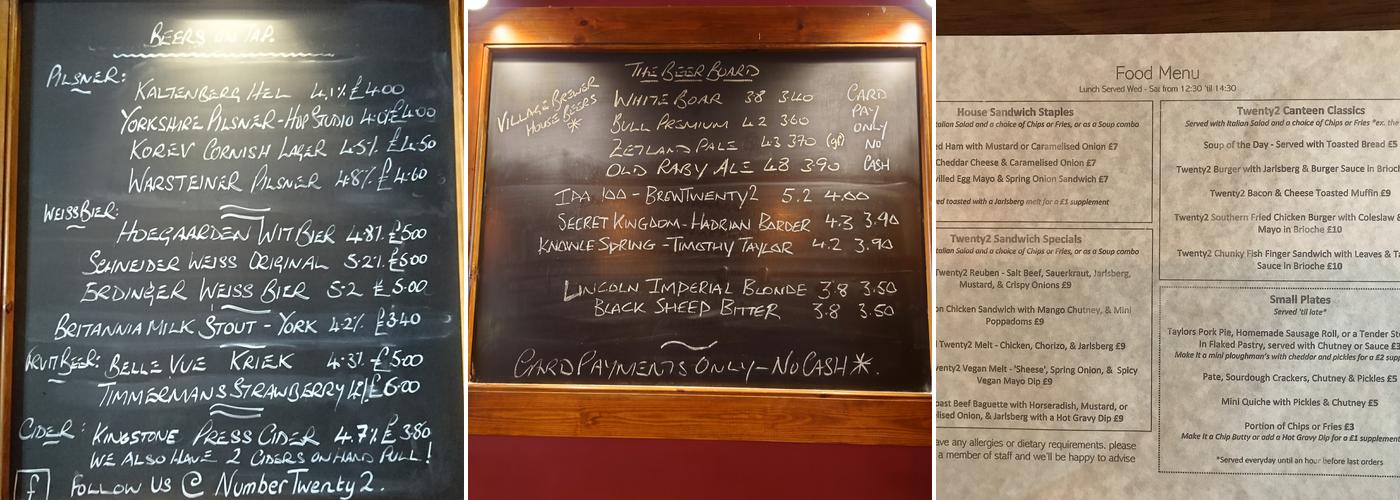 BEERS ON TAP.
PILSNER:
KALTENBERG HEL 4.1% £4.00
YORKSHIRE PILSNER-HOP STUDIO 4.0% £4.00
KOREV CORNISH LAGER 4.5% £4.50
WARSTEINER PILSNER 4.8% £4.60
WEISSBIER:
HOEGAARDEN WITBIER 4.8% £5.00
SCHNEIDER WEISS ORIGINAL 5.2% £5.00
ERDINGER WEISS BIER 5.2 £5.00
BRITANNIA MILK STOUT - YORK 4.2% £3.40
FRUITBEER: BELLE VUE KRIEK 4.3% £5.00
TIMMERMANS STRAWBERRY £6.00
CIDER: KINGSTONE PRESS CIDER 4.7% £3.80
WE ALSO HAVE 2 CIDERS ON HAND PULL!
f FOLLOW US @ NumberTwenty2.
THE BEER BOARD
VILLAGE BREWER
HOUSE BEERS
*
WHITE BOAR 38 340
BULL PREMIUM 42 360
ZETLAND PALE 43 370 (gf)
OLD RABY ALE 48 390
CARD
PAY
ONLY
NO
CASH
IPA 100 - BREWTWENTY2 5.2 4.00
SECRET KINGDOM-HADRIAN BORDER 4.3 3.90
KNOWLE SPRING -TIMOTHY TAYLOR 4.2 3.90
LINCOLN IMPERIAL BLONDE 3.8 3.50
BLACK SHEEP BITTER 3.8 3.50
CARD PAYMENTS ONLY-NO CASH *.
Food Menu
Lunch Served Wed - Sat from 12:30 'til 14:30
House Sandwich Staples
Salad and a choice of Chips or Fries, or as a Soup combo
Ham with Mustard or Caramelised Onion £7
Cheddar Cheese & Caramelised Onion £7
Egg Mayo & Spring Onion Sandwich £7
toasted with a Jarlsberg melt for a £1 supplement
Twenty2 Sandwich Specials
Salad and a choice of Chips or Fries, or as a Soup combo
Twenty2 Reuben - Salt Beef, Sauerkraut, Jarlsberg,
Mustard, & Crispy Onions £9
Chicken Sandwich with Mango Chutney, & Mini
Poppadoms £9
Twenty2 Melt - Chicken, Chorizo, & Jarlsberg £9
Vegan Melt - 'Sheese', Spring Onion, & Spicy
Vegan Mayo Dip £9
Beef Baguette with Horseradish, Mustard, or
Onion, & Jarlsberg with a Hot Gravy Dip £9
have any allergies or dietary requirements, please
a member of staff and we'll be happy to advise
Twenty2 Canteen Classics
Served with Italian Salad and a choice of Chips or Fries *ex. the
Soup of the Day - Served with Toasted Bread £5
Twenty2 Burger with Jarlsberg & Burger Sauce in
Twenty2 Bacon & Cheese Toasted Muffin £9
Twenty2 Southern Fried Chicken Burger with Coleslaw &
Mayo in Brioche £10
Twenty2 Chunky Fish Finger Sandwich with Leaves &
Sauce in Brioche £10
Small Plates
Served 'til late*
Taylors Pork Pie, Homemade Sausage Roll, or a Tender
In Flaked Pastry, served with Chutney or Sauce
Make it a mini ploughman's with cheddar and pickles for a £2
Pate, Sourdough Crackers, Chutney & Pickles £5
Mini Quiche with Pickles & Chutney £5
Portion of Chips or Fries £3
Make it a Chip Butty or add a Hot Gravy Dip for a £1
*Served everyday until an hour before last orders